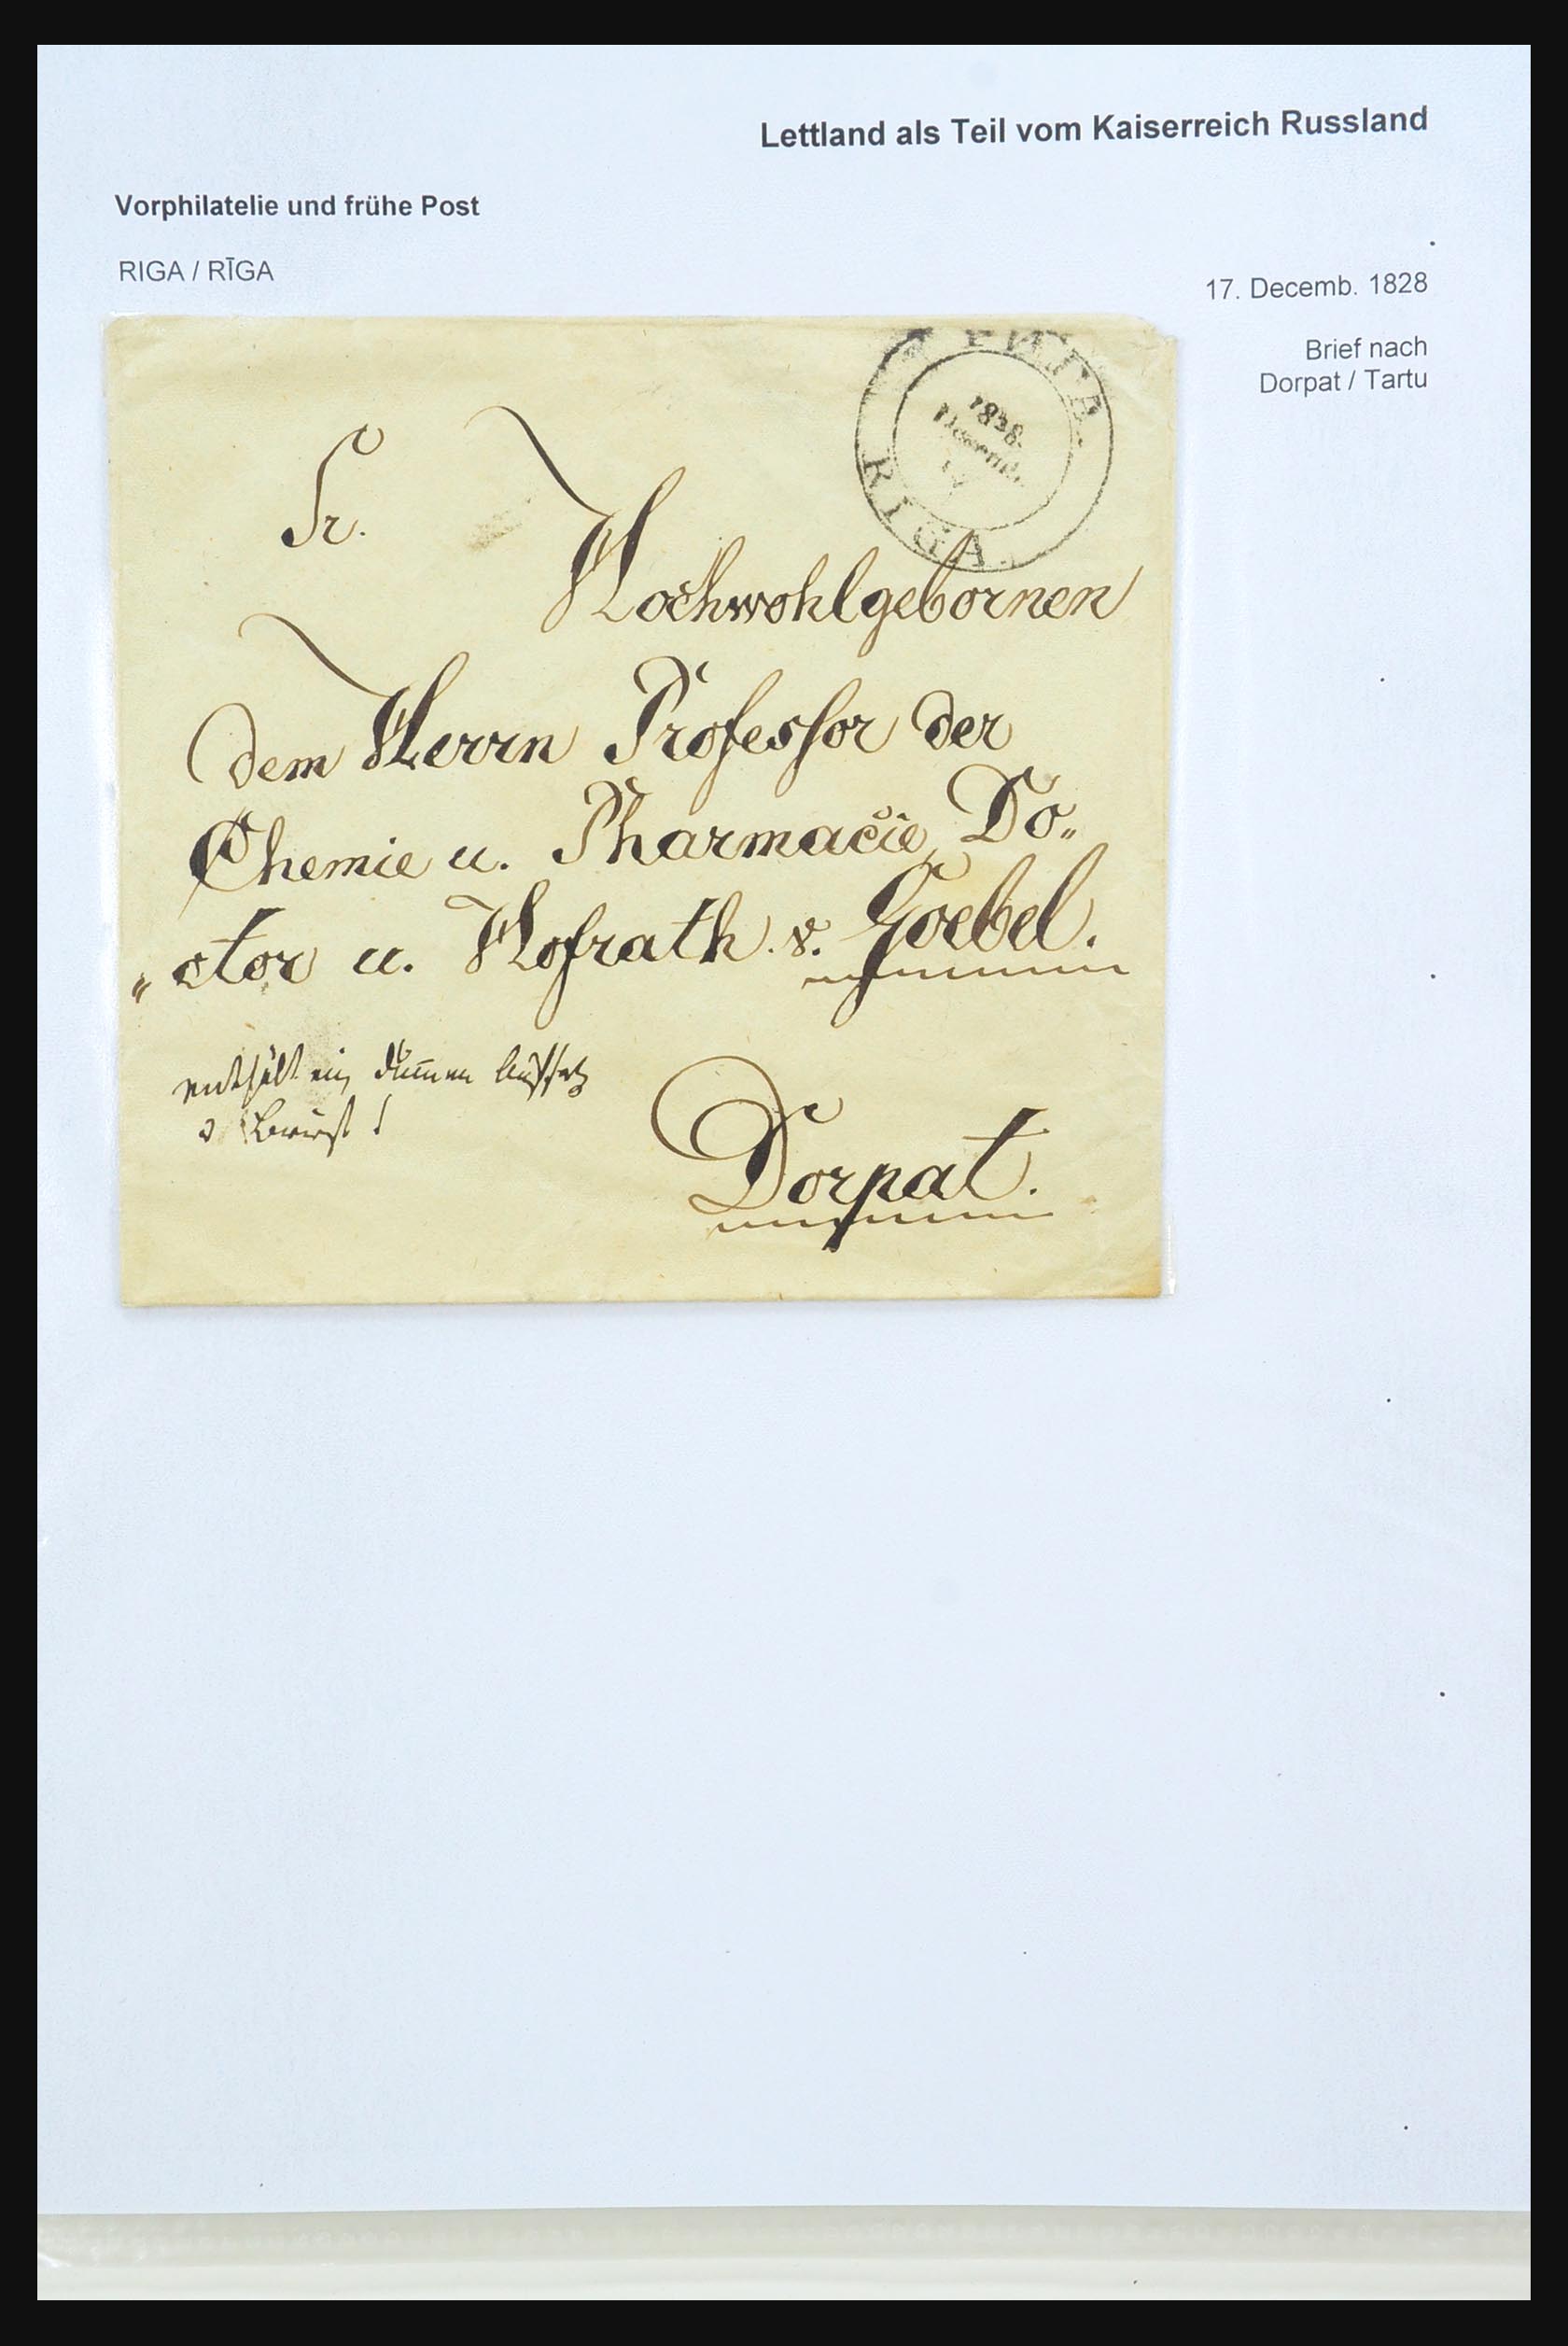 Lettland als Teil vom Kaiserreich Russland
Vorphilatelie und frühe Post
RIGA / RĪGA
17. Decemb. 1828
Brief nach
Dorpat / Tartu
РИГА.
1828.
Decemb.
17
RIGA.
Sr.
Hochwohlgebornen
dem Herrn Professor der
Chemie u. Pharmacie Do„
„ctor u. Hofrath v. Goebel.
enthält ein dum̄en Aufsatz
Dorpat.